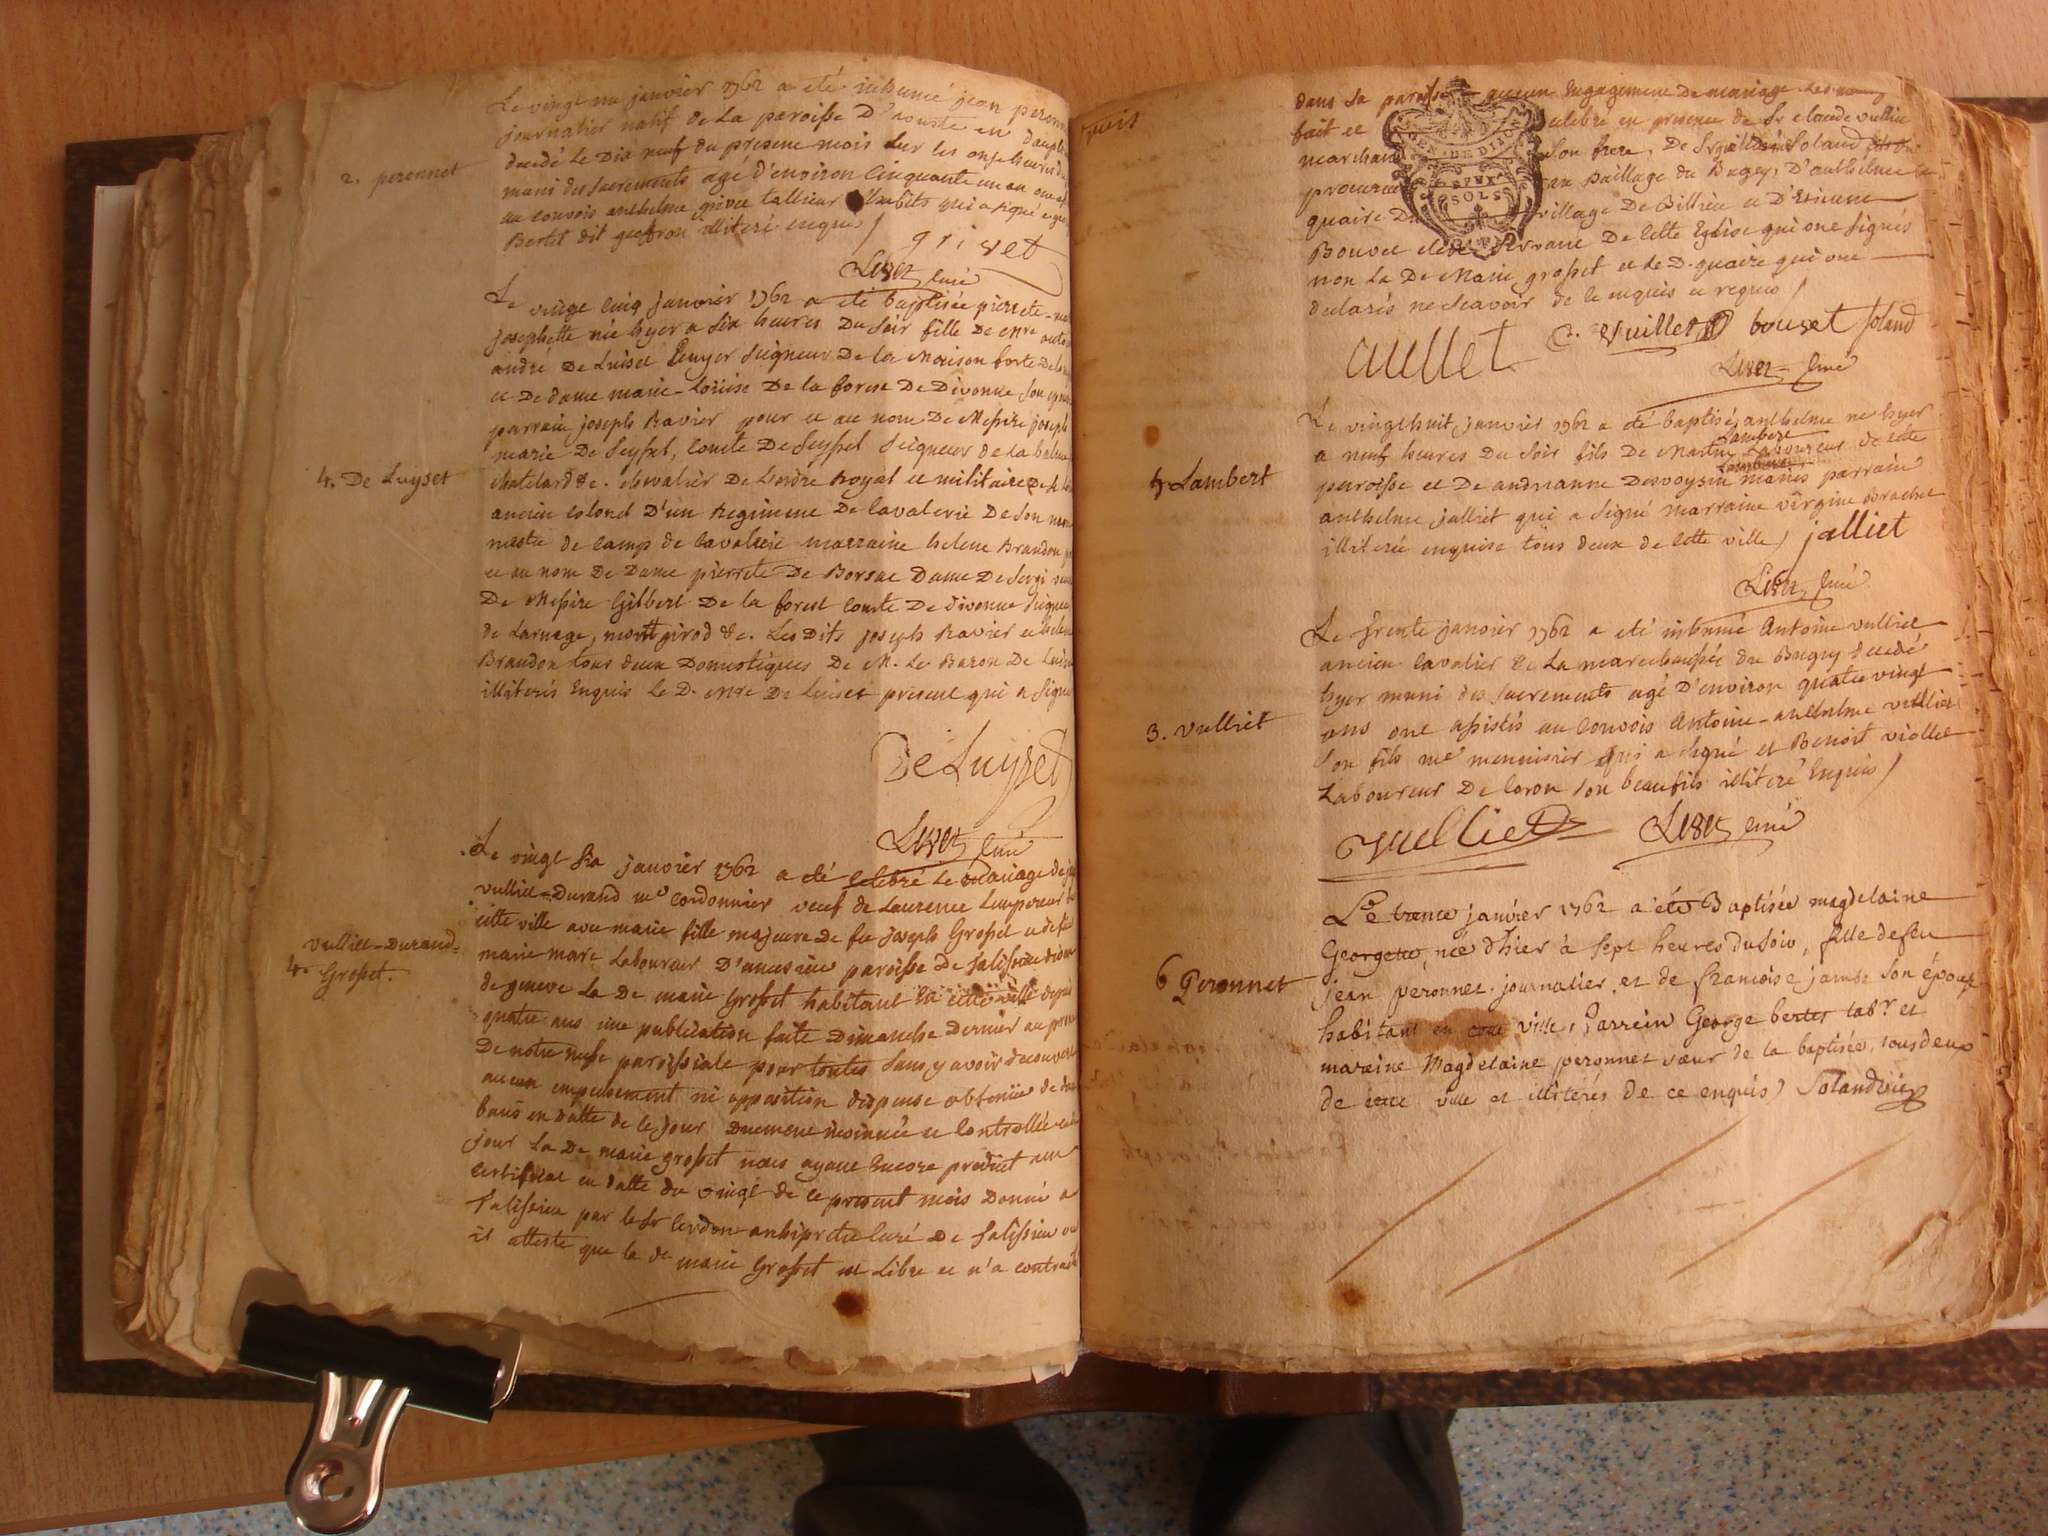 Le vingt un janvier 1762 a eté inhumé jean peronn
journalier natif de La paroisse D' en Dauph
decedé Le Dix neuf du present mois sur les onze heures du
muni des sacrements agé d'environ Cinquante un an ont
au convois anthelme grivet tallieur D'habits qui a signé et
Bertet dit illiteré enquis /
2. peronnet
grivet
Curé
Le vingt cinq janvier 1762 a eté baptisée pierrete
josephette née hyer a six heures Du soir fille De mre
andré De Luiset Ecuyer Seigneur De la Maison forte De
et De dame marie-Louise De la forest De Divonne son
parrain joseph Ravier pour et au nom De Messire joseph
marie De Seyssel, comte De Seyssel Seigneur de La balme
chatelard &c. chevalier De L'ordre Royal et militaire De
ancien colonel D'un Regiment De Cavalerie De son nom
mestre de camp de Cavalerie marraine helene Brandon
et au nom De Dame pierrete De Borsat Dame De
De Messire Gilbert De la forest comte De divonne seigneur
de Larnage, montgirod &c. Les Dits joseph Ravier et helene
Brandon tous deux Domestiques De M. Le Baron De Luiset
illiterés Enquis Le D. mre De Luiset present qui a signé
4. De Luyset
De Luyset
Curé
Le vingt six janvier 1762 a eté celebré Le mariage de
vulliet-Durand me cordonnier veuf de Laurence Lempereur
cette ville avec marie fille majeure De feu joseph Grosset et
marie marc Laboureur D'anassieu paroisse De Talissieu
de geneve La De marie Grosset habitant En cette ville depuis
quatre ans une publication faite Dimanche Dernier au prone
De notre messe paroissiale pour toutes sans y avoir decouvert
aucun empechement ni opposition dispense obtenüe de deux
bans en datte de ce jour Duement insinuée et Controllée
jour La De marie grosset nous ayant Encore produit un
certificat en datte du vingt de ce present mois Donné a
Talissieu par le Sr archipretre Curé De Talissieu ou
il atteste que la de marie Grosset est Libre et n'a contracté
vulliet-Durand-
4. Grosset.
dans sa paroisse aucun Engagement De mariage
fait et celebré en presence de Sr claude vulliet
marchand son frere, De Sr Soland
procureur au Baillage du Bugey, D'anthelme
quaire village De Billieu et D'Etienne
Bouvet clerc servant De cette Eglise qui ont signés
non La De Marie grosset et le D. quaire qui ont
declarés ne scavoir de ce enquis et requis /
C. Vuilliet bouvet Soland
Curé
Le vingt huit janvier 1762 a eté baptisé anthelme né hyer
a neuf heures Du soir fils De Martin Lambert Laboureur de cette
paroisse et De andrianne Desvoysin mariés parrain
anthelme jalliet qui a signé marraine virgine brachet
illiterée enquise tous deux de cette ville / jalliet
5 Lambert
Curé
Le trente janvier 1762 a eté inhumé Antoine vulliet
ancien Cavalier de La marechaussée du Bugey decedé
hyer muni des sacrements agé D'environ quatre vingt
ans ont assistés au convois Antoine-anthelme vulliet
son fils me menuisier qui a signé et Benoit viollet
Laboureur De son beaufils illiteré Enquis /
3. vulliet
Vuelliet Curé
Le trente janvier 1762 a été Baptisée magdelaine
Georgette, née d'hier à sept heures du soir, fille de feu
jean péronnet journalier, et de françoise son épouse
habitant en cette ville, Parrein George bertet labr. et
maraine Magdelaine peronnet sœur de la baptisée, tous deux
de cette ville et illitérés de ce enquis /
6 Peronnet